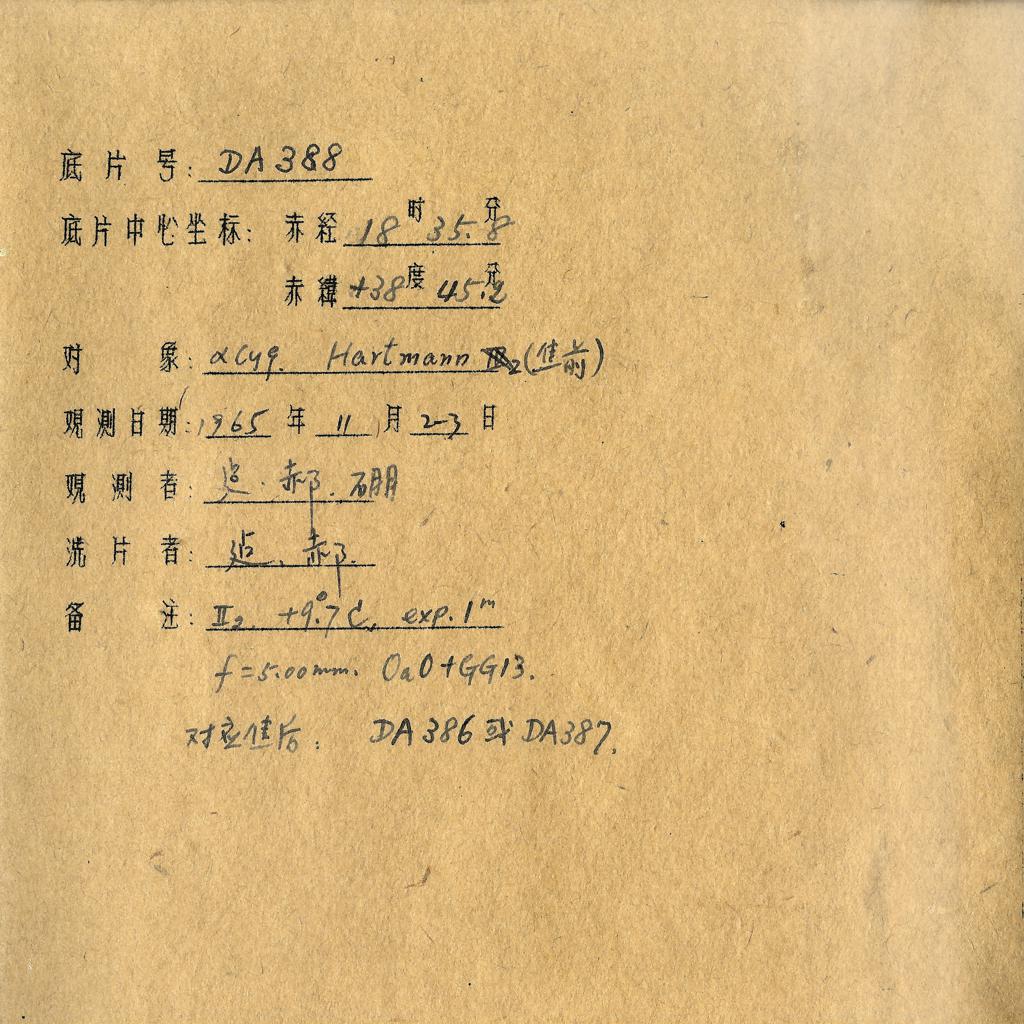 底片号: DA388
底片中心坐标: 赤经 18时 35.8分
赤緯 +38度 45.2分
对象: αCyg. Hartmann 2 (焦前)
观测日期: 1965年 11月 2-3日
观测者: 郝. 硼
洗片者: 郝.
备注: II2, +9°.7C, exp. 1m
f=5.00mm. OaO+GG13.
对应焦后: DA386或DA387.